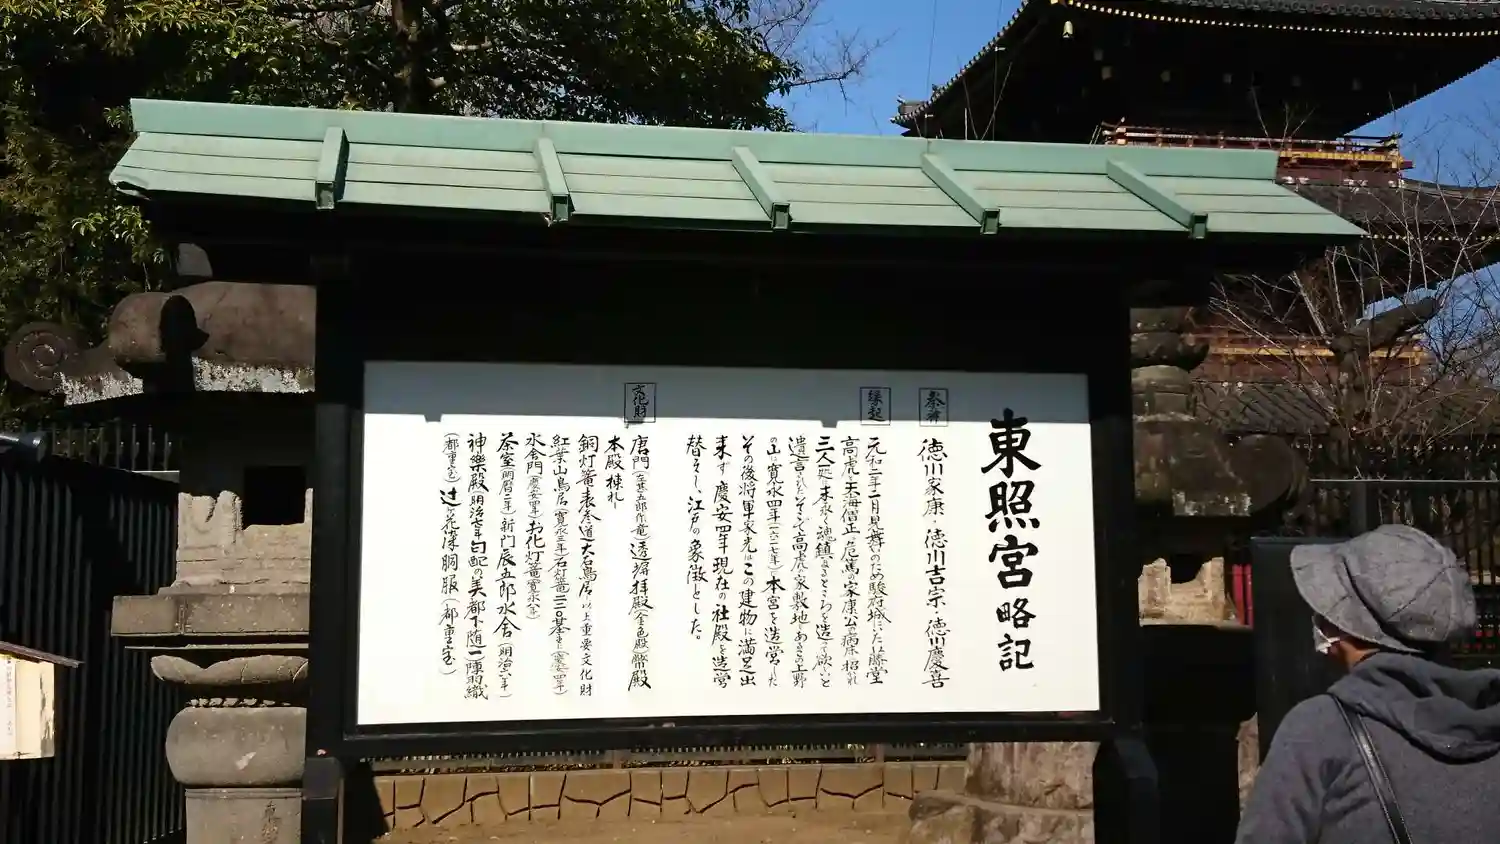 東照宮略記
祭神
徳川家康・徳川吉宗・徳川慶喜
縁起
元和二年二月見舞のため駿府城にいた藤堂
高虎と天海僧正は危篤の家康公の病床に招かれ
三人一処に末永く魂鎮まるところを造って欲しいと
遺言された。そこで高虎の家敷地であるこの上野
の山に寛永四年(一六二七年)に本宮を造営した
その後将軍家光はこの建物に満足出
来ず慶安四年現在の社殿を造営
替えそし江戸の象徴とした。
文化財
唐門(左甚五郎作竜)透塀拝殿(金色殿)幣殿
本殿棟札
銅灯篭表参道大石鳥居以上重要文化財
紅葉山鳥居(寛永三年)石灯篭二三〇基(慶安四年)
水舎門(慶安四年)お化灯篭(寛永八年)
茶室(明暦二年)新門辰五郎水舎(明治六年)
神楽殿明治七年勾配の美都下随一陣羽織
(都重宝)辻ヶ花染胴服(都重宝)